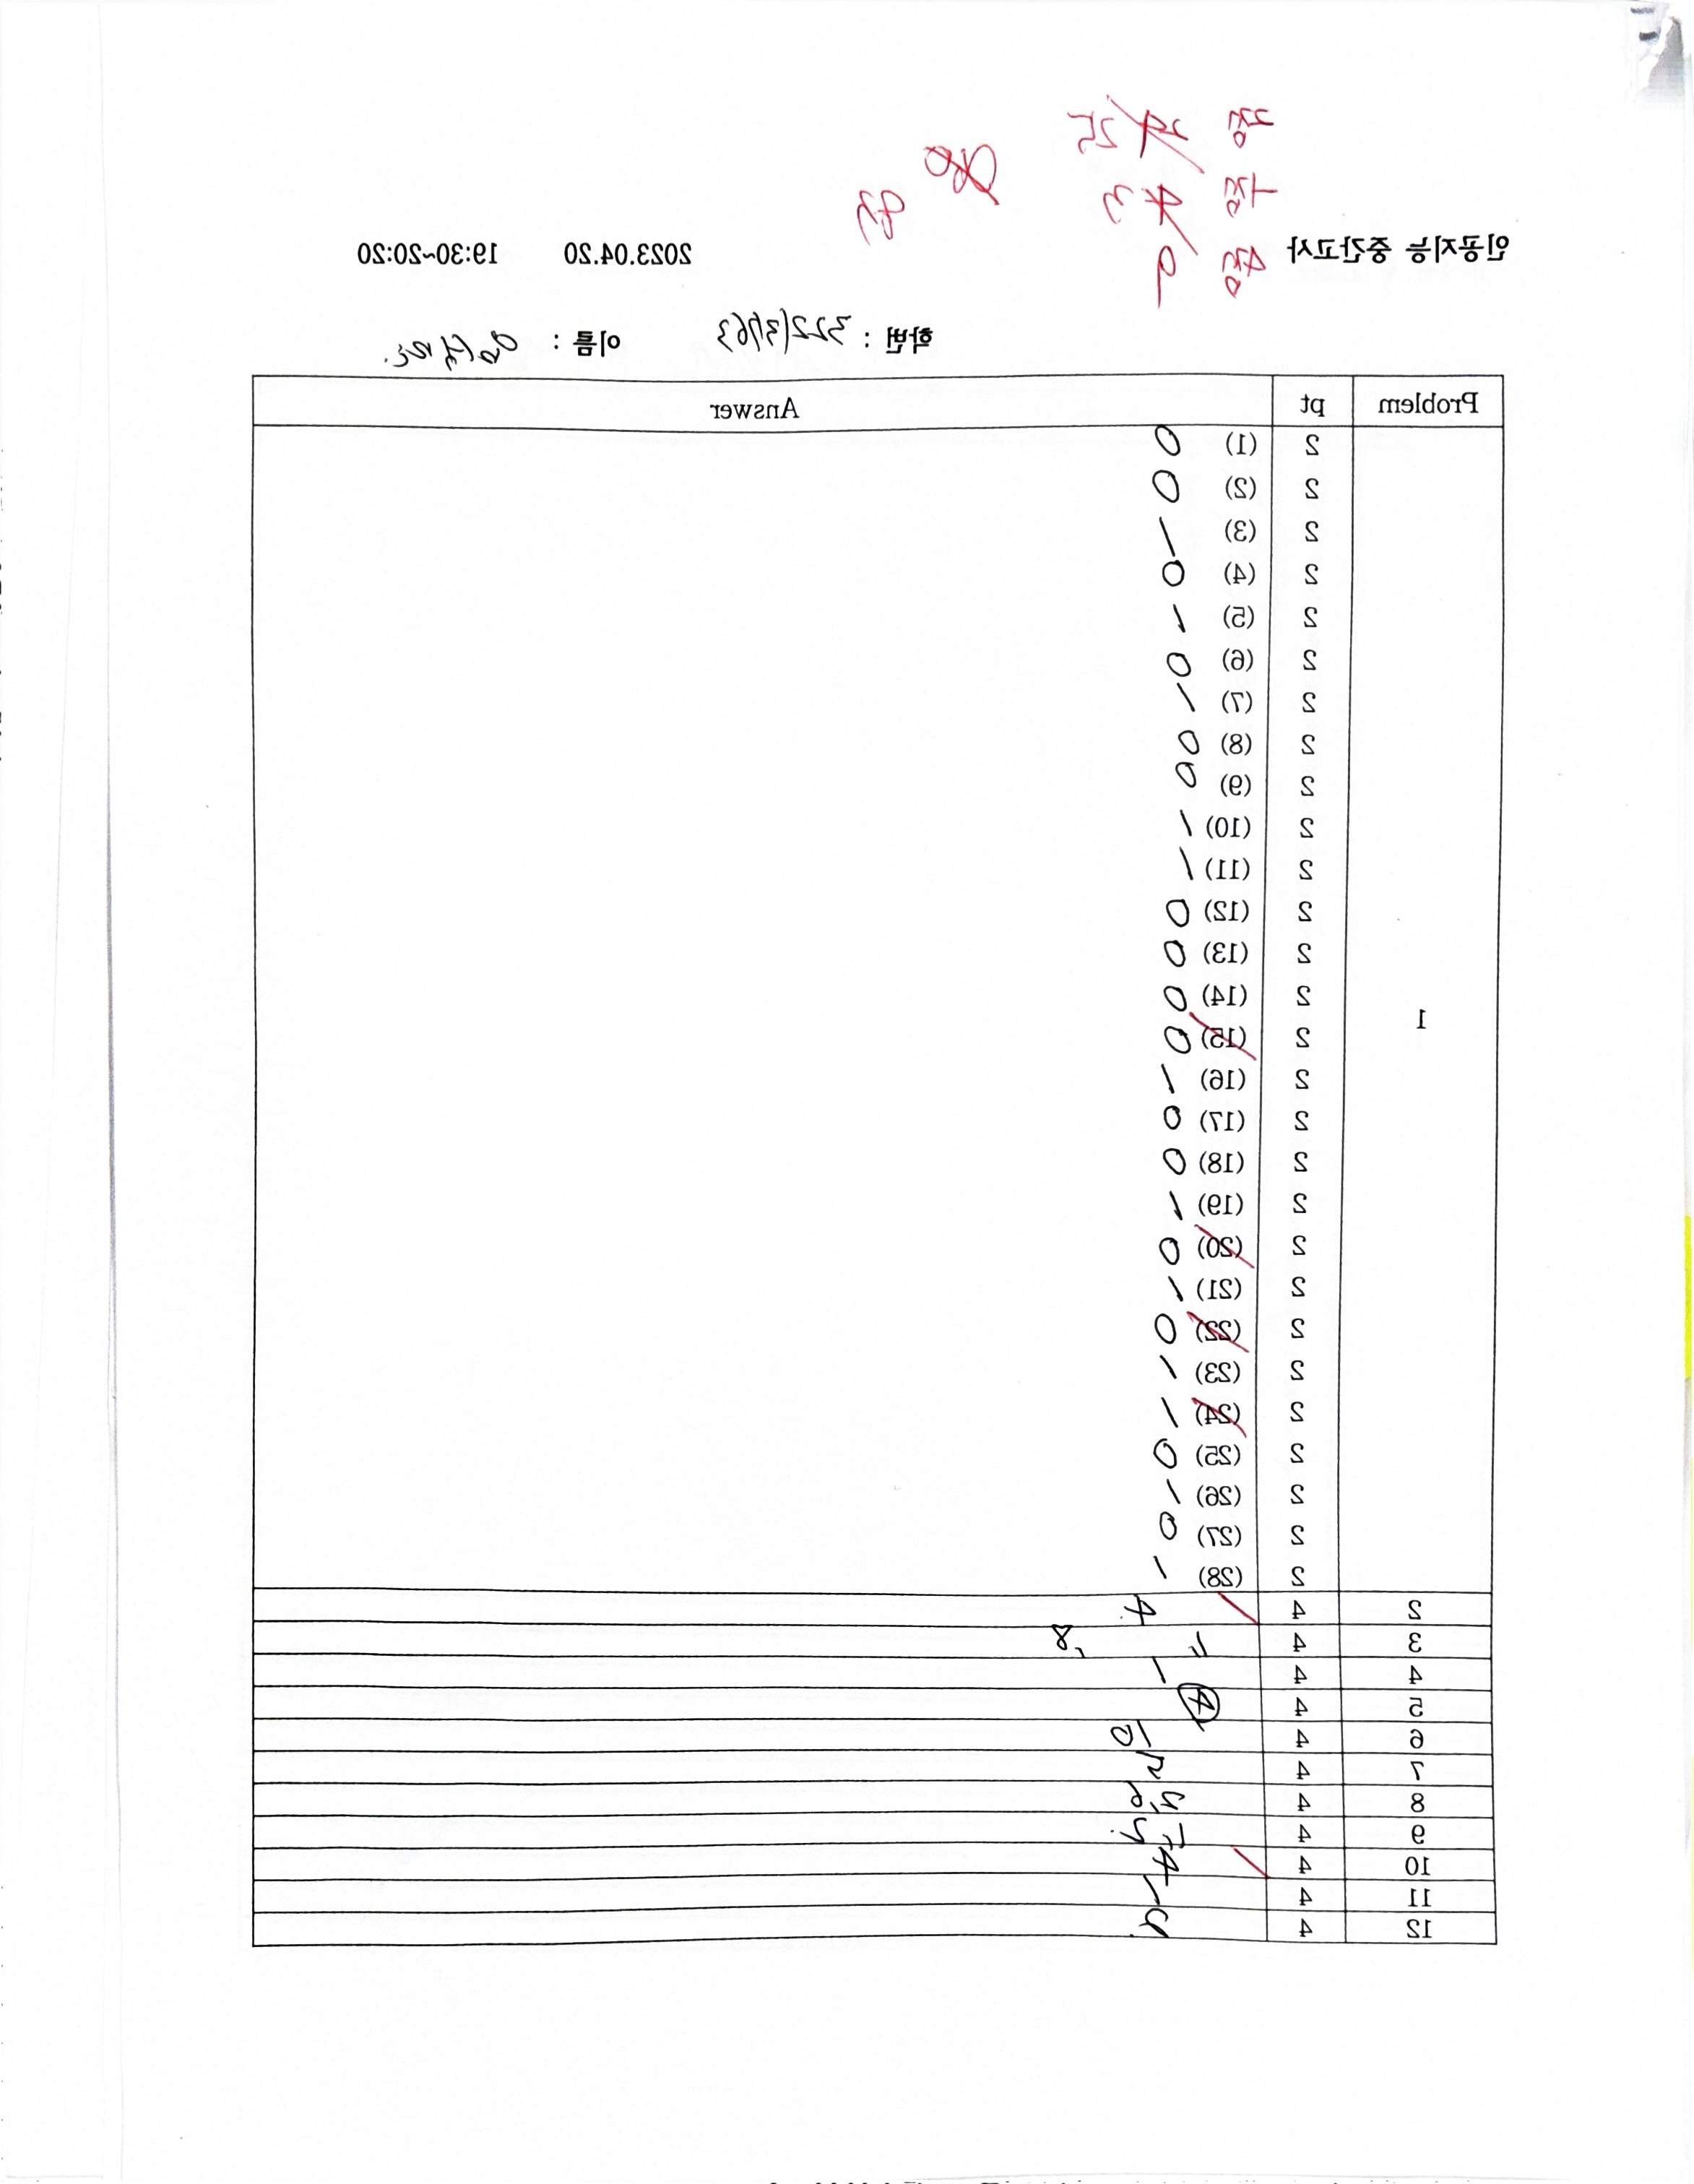 인공지능 중간고사 2023.04.20 19:30~20:20
학번 : 이름 :
Problem pt Answer
1
2 (1) 0
2 (2) 0
2 (3) 1
2 (4) 0
2 (5) 1
2 (6) 0
2 (7) 1
2 (8) 0
2 (9) 0
2 (10) 1
2 (11) 1
2 (12) 0
2 (13) 0
2 (14) 0
2 (15) 0
2 (16) 1
2 (17) 0
2 (18) 0
2 (19) 1
2 (20) 0
2 (21) 1
2 (22) 0
2 (23) 1
2 (24) 1
2 (25) 0
2 (26) 1
2 (27) 0
2 (28) 1
2 4 4
3 4
4 4 1
5 4 4
6 4 10
7 4
8 4
9 4
10 4 4
11 4 1
12 4